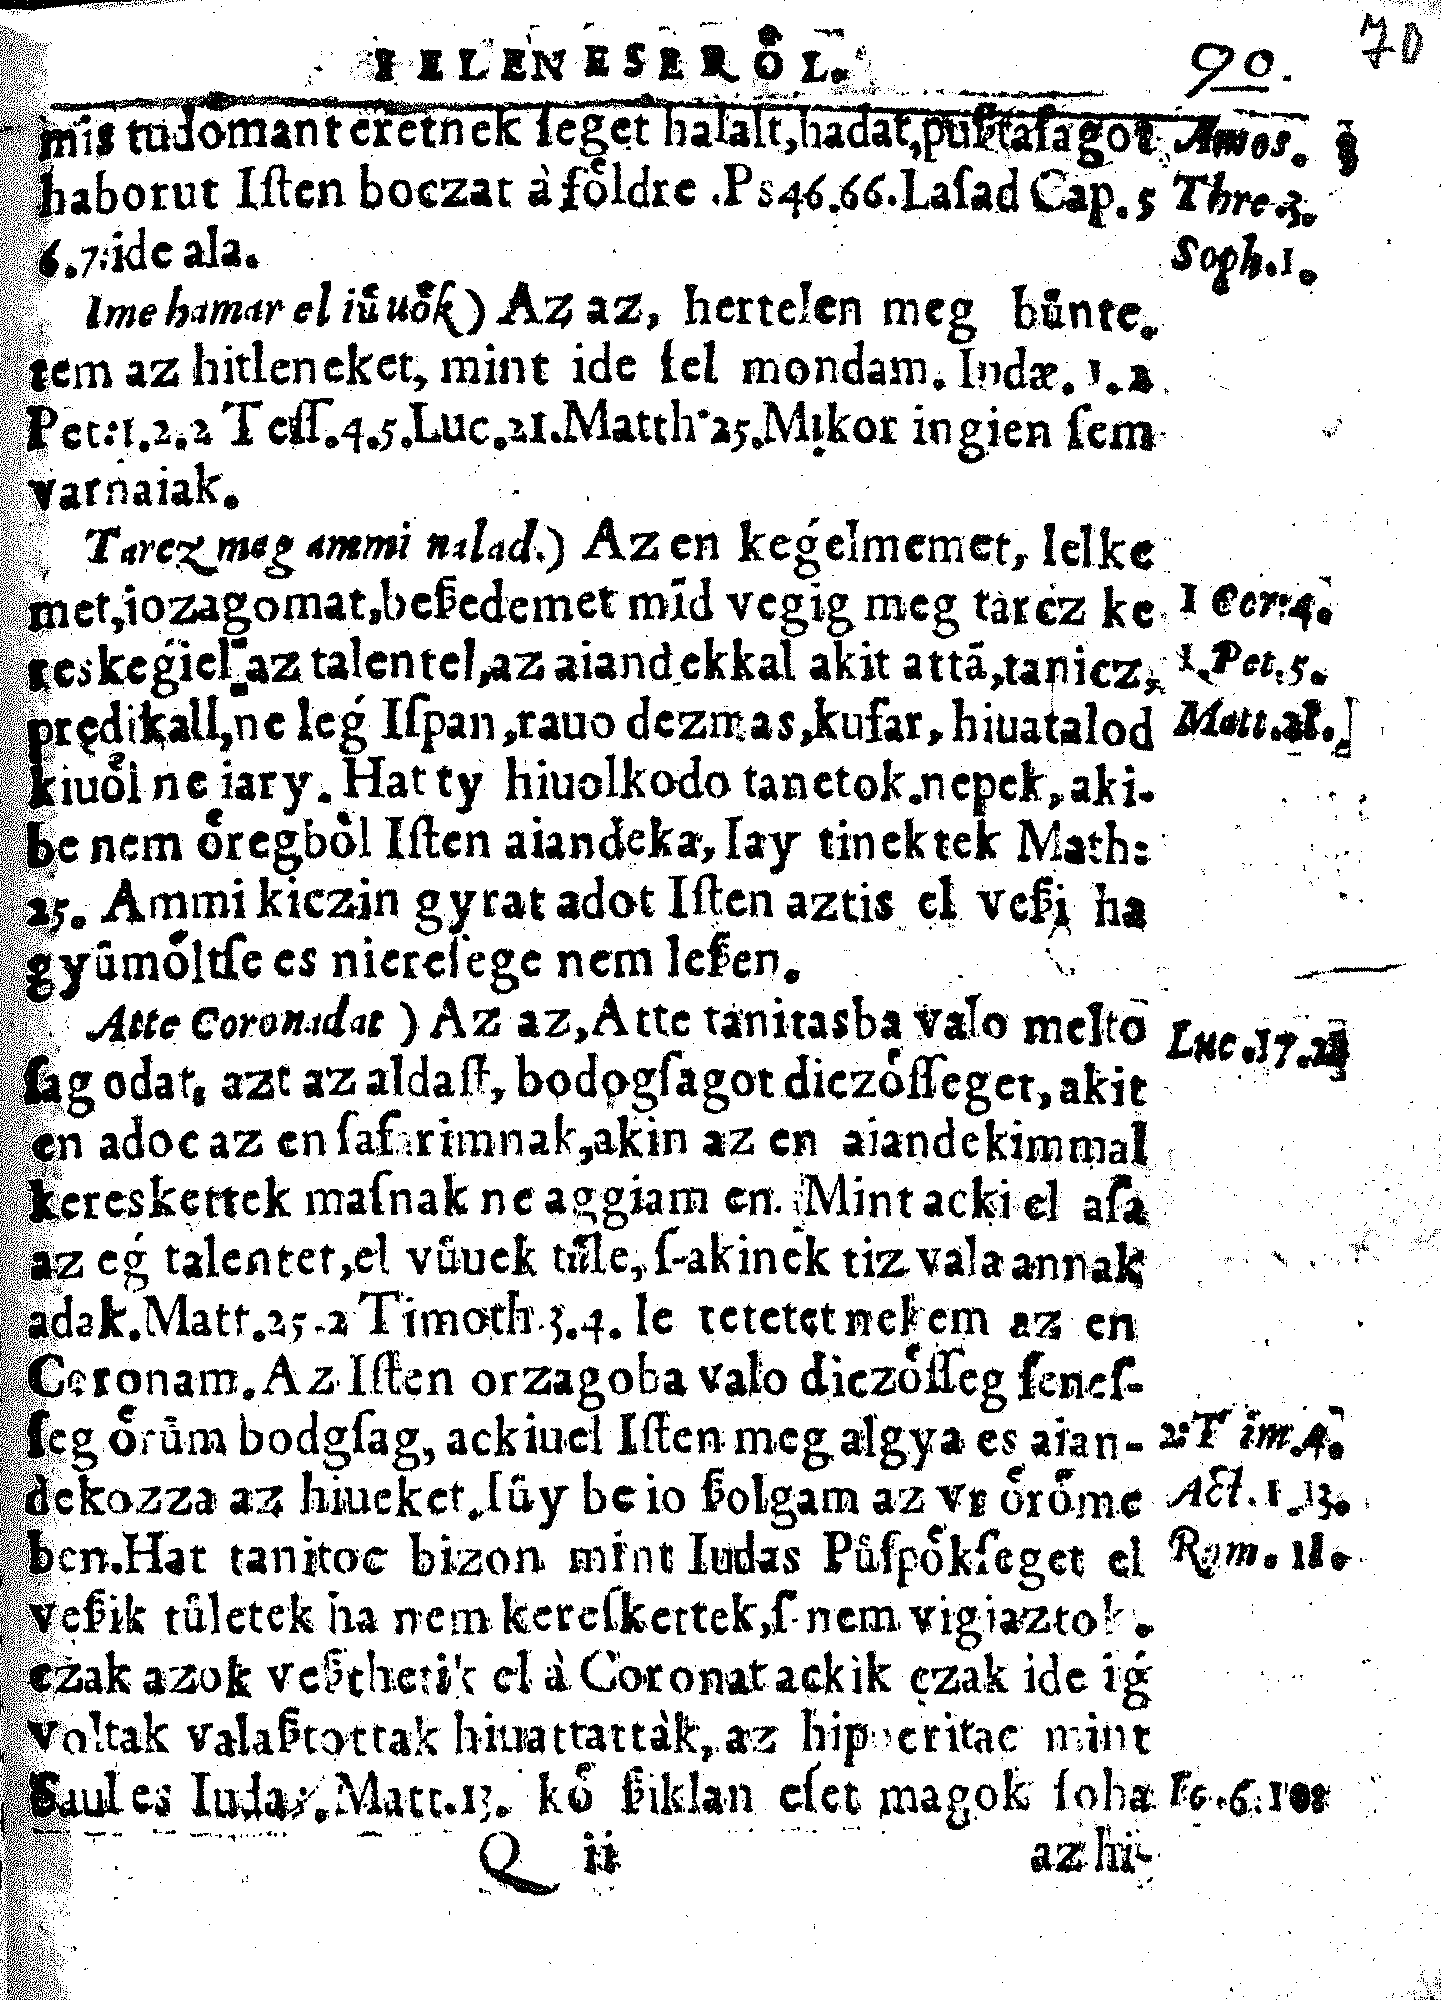 IELENESERŐL. 90. 70
mis tudomant eretnek ſeget halalt, hadat, pußtaſagot Amos.
haborut Iſten boczat à főldre .Ps 46.66. Laſad Cap. 5 Thre.3.
6.7: ide ala. Soph.1.
Ime hamar el iűuők) Az az, hertelen meg bűnte.
tem az hitleneket, mint ide fel mondam. Iudæ. 1.2
Pet: 1.2.2 Teſſ.4.5. Luc.21. Matth 25. Mikor ingien ſem
varnaiak.
Tarcz meg ammi nalad.) Az en keǵelmemet, lelke
met, iozagomat, beßedemet mīd vegig meg tarcz ke 1 Cor:4.
reskeǵiel az talentel, az aiandekkal akit attā, tanicz, 1. Pet.5.
prędikall, ne leǵ Iſpan, rauo dezmas, kufar, hiuatalod Matt.21.
kiuől ne iary. Hat ty hiuolkodo tanetok nepek, aki-
be nem őregből Iſten aiandeka, Iay tinektek Math:
25. Ammi kiczin gyrat adot Iſten aztis el veßi ha
gyűmőltſe es niereſege nem leßen.
Atte Coronadat ) Az az, Atte tanitasba valo melto
ſag odat, azt az aldaſt, bodogſagot diczőſſeget, akit Luc.17.
en adoc az en ſafarimnak, akin az en aiandekimmal
kereskettek maſnak ne aggiam en. Mint acki el aſa
az eǵ talentet, el vűuek tűle, ſ-akinek tiz vala annak
adak. Matt.25.2 Timoth.3.4. le tetetet nekem az en
Coronam. Az Iſten orzagoba valo diczőſſeg feneſ-
ſeg őrűm bodgſag, ackiuel Iſten meg algya es aian- 2:Tim.4.
dekozza az hiueket. ſűy be io ßolgam az vr őrőme Act.1.13.
ben. Hat tanitoc bizon mint Iudas Pűſpőkſeget el Rom. 11.
veßik tűletek ha nem kereſkettek, ſ- nem vigiaztok.
czak azok veßthetik el à Coronat ackik czak ide iǵ
voltak valaßtottak hiuattattàk, az hipocritac mint
Saul es Iudas. Matt.13. kő ßiklan eſet magok ſoha Io.6.10
Q ii az hi-